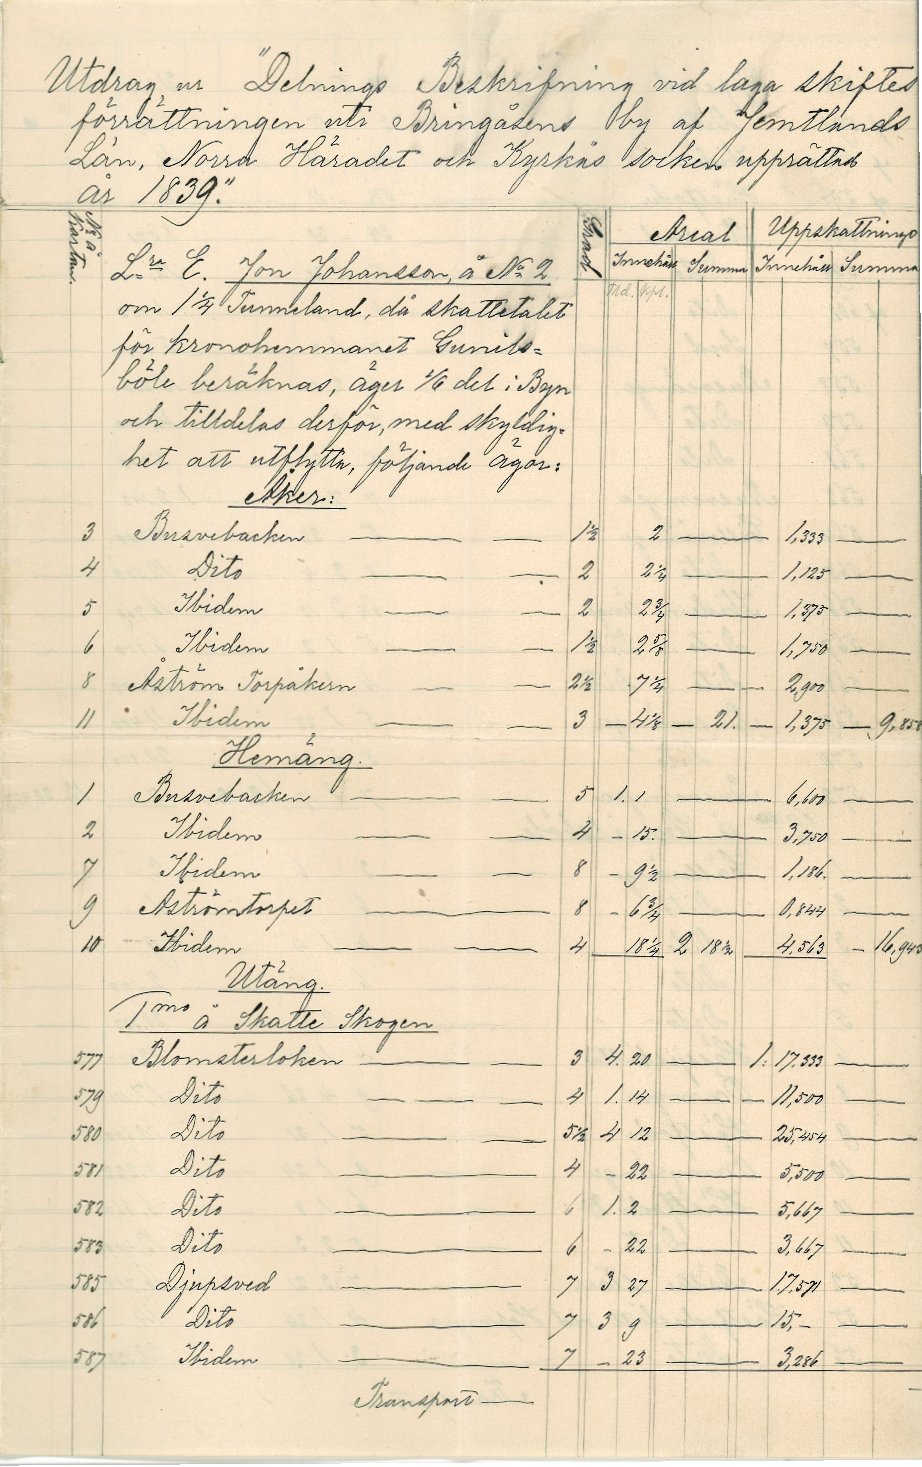 Utdrag ur "Delnings Beskrifning vid laga skiftes
förrättningen uti Bringåsens by af Jemtlands
Län, Norra Häradet och Kyrkås socken upprättad
år 1839."
No å Kartan. Grad Areal Uppskattnings
Innehåll Summa Innehåll Summa
Tld. Kpl.
L:ra E. Jon Johansson, å No 2
om 1 1/4 Tunneland, då skattetalet
för kronohemmanet Gunils=
böle beräknas, äger 1/6 del i Byn
och tilldelas derför, med skyldig-
het att utflytta, följande ägor:
Åker:
3 Busvebacken 1 1/2 2 1,333
4 Dito 2 2 1/4 1,125
5 Ibidem 2 2 3/4 1,375
6 Ibidem 1 1/2 2 5/8 1,750
8 Åström Torpåkern 2 1/2 7 1/4 2,900
11 Ibidem 3 - 4 1/8 - 21. - 1,375 - 9,858
Hemäng.
1 Busvebacken 5 1. 1 6,600
2 Ibidem 4 - 15. 3,750
7 Ibidem 8 - 9 1/2 1,186.
9 Åströmtorpet 8 - 6 3/4 0,844
10 Ibidem 4 18 1/4 2 18 1/2 4,563 - 16,943
Utäng.
1mo å Skatte Skogen
577 Blomsterloken 3 4. 20 1: 17,333
579 Dito 4 1. 14 11,500
580 Dito 5 1/2 4 12 25,454
581 Dito 4 - 22 5,500
582 Dito 6 1. 2 5,667
583 Dito 6 - 22 3,667
585 Djupsved 7 3 27 17,571
586 Dito 7 3 9 15,-
587 Ibidem 7 - 23 3,286
Transport